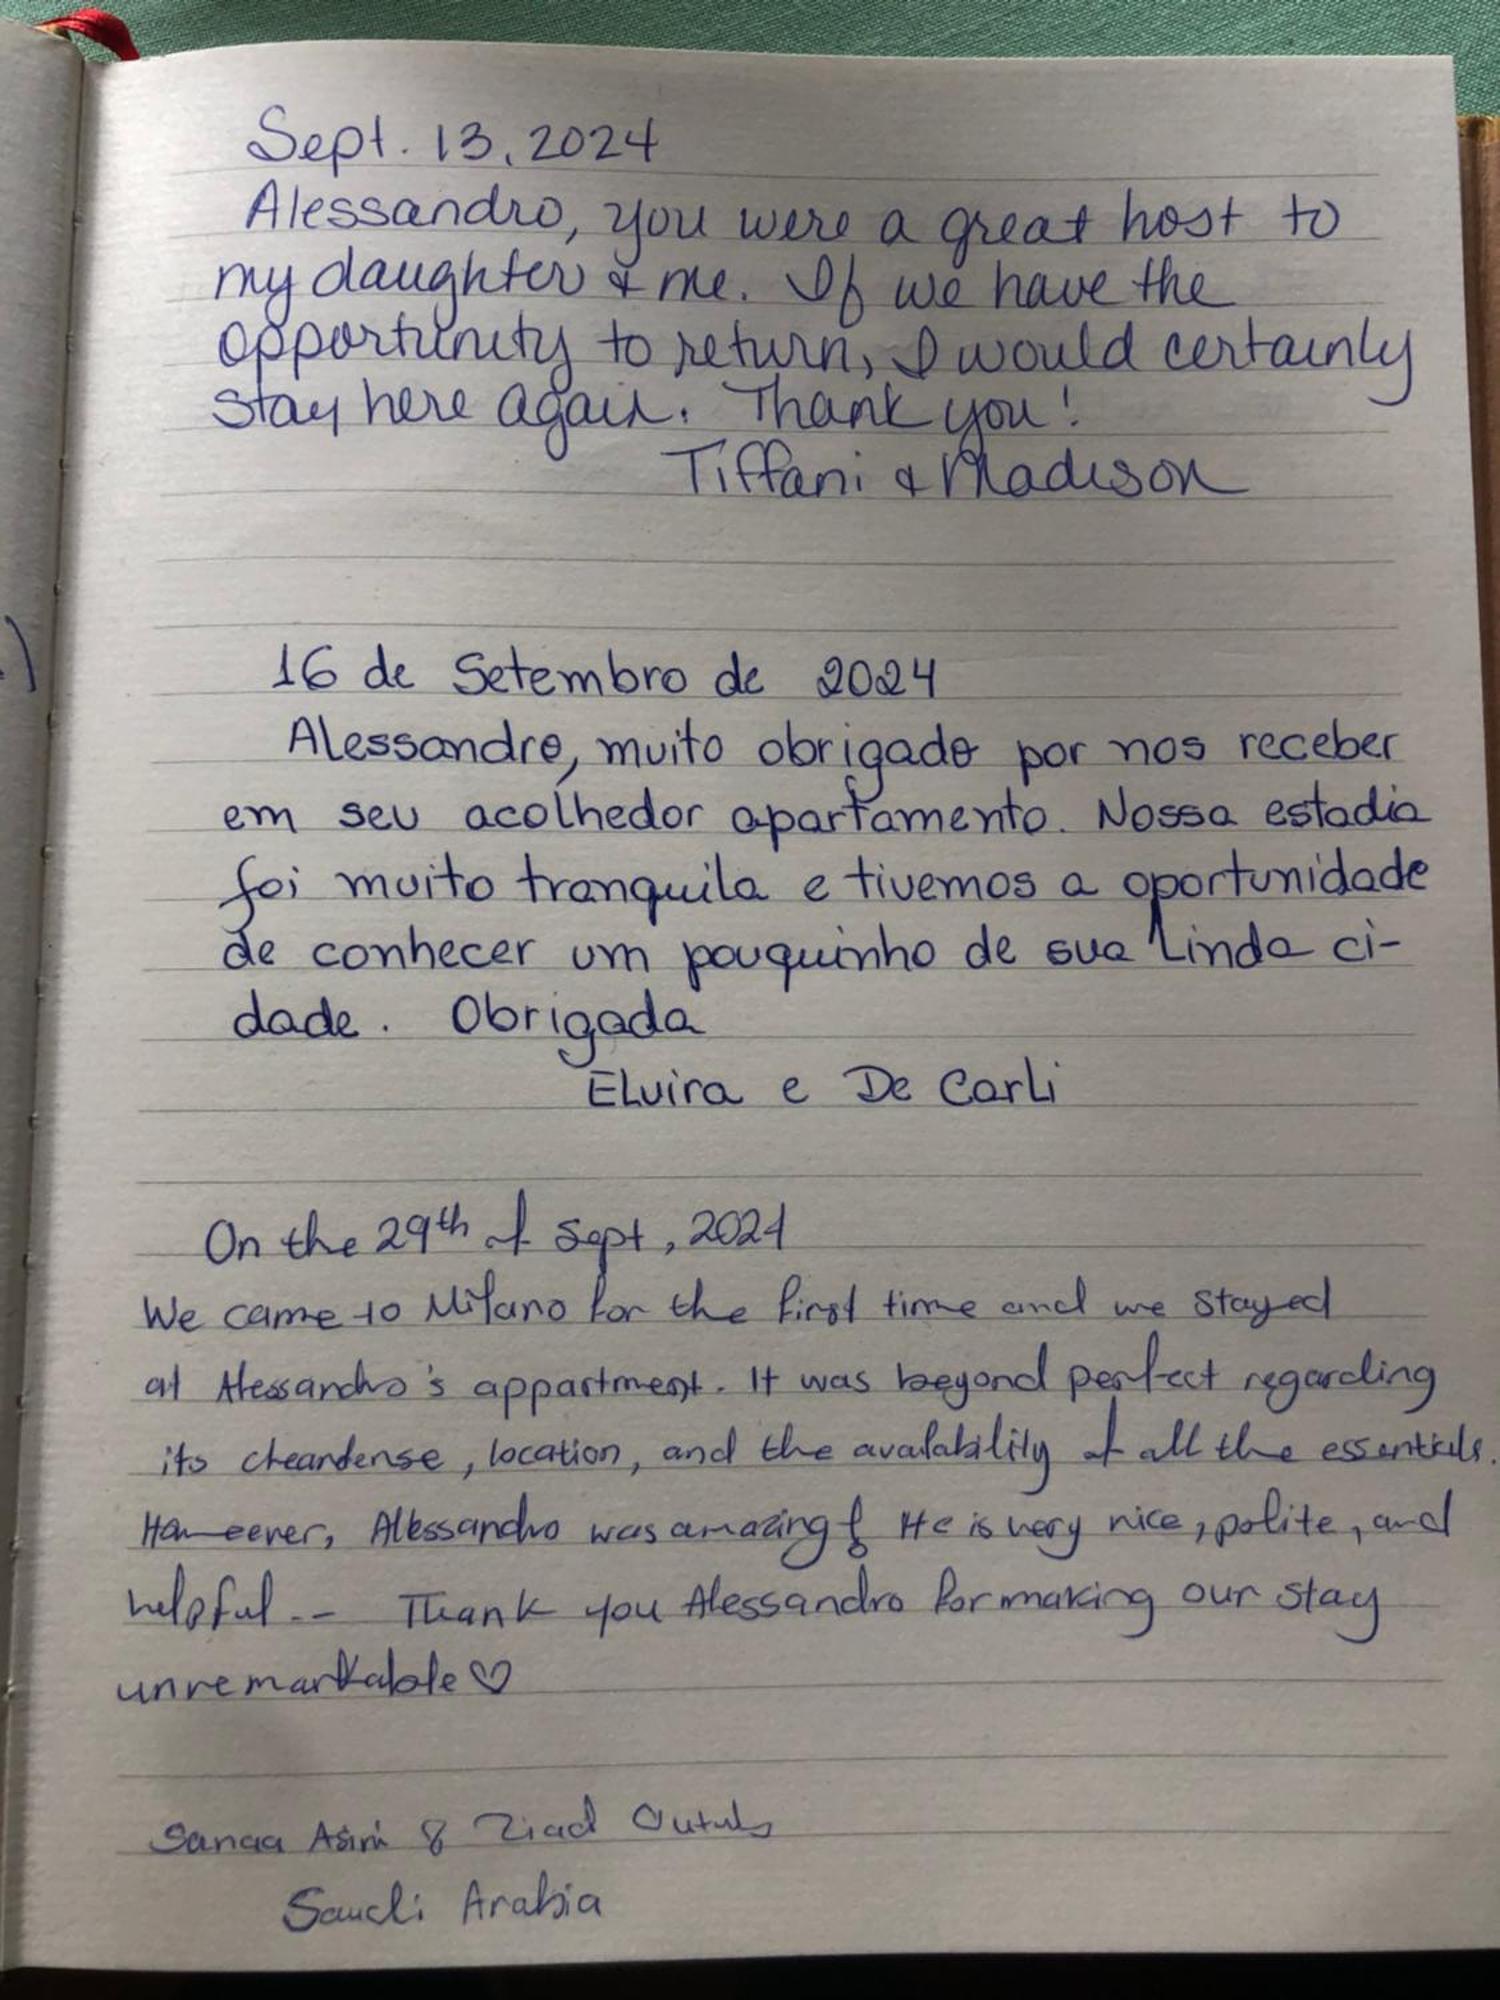 Sept. 13, 2024
Alessandro, you were a great host to
my daughter & me. If we have the
opportunity to return, I would certainly
stay here again. Thank you!
Tiffani & Madison
16 de Setembro de 2024
Alessandro, muito obrigado por nos receber
em seu acolhedor apartamento. Nossa estadia
foi muito tranquila e tivemos a oportunidade
de conhecer um pouquinho de sua linda ci-
dade. Obrigada
Elvira e De Carli
On the 29th of Sept, 2024
We came to Milano for the first time and we stayed
at Alessandro's appartment. It was beyond perfect regarding
its , location, and the availability of all the essentials.
However, Alessandro was amazing! He is very nice, polite, and
helpful... Thank you Alessandro for making our stay
unremarkable ♡
Sanaa Asiri & Ziad
Saudi Arabia